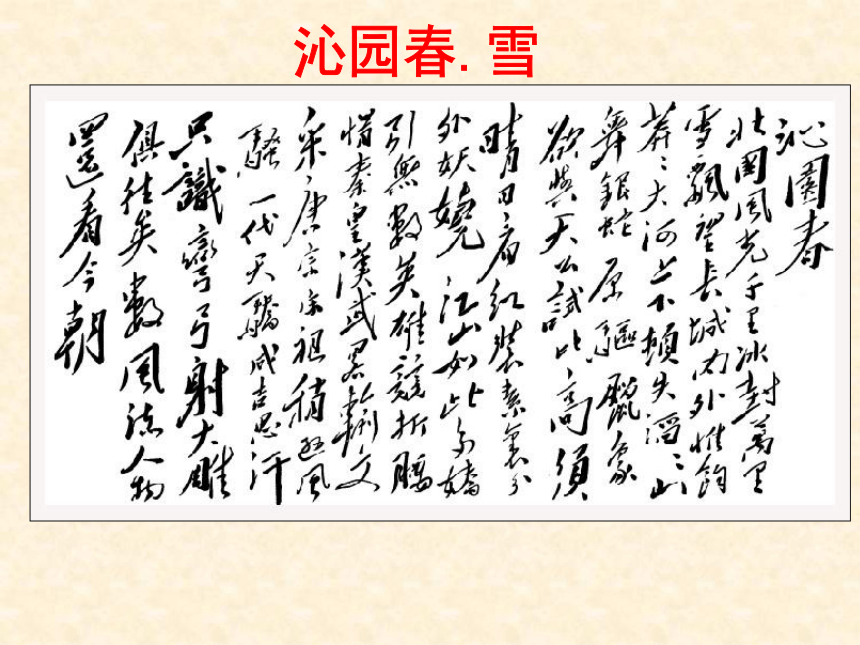 沁园春.雪
沁園春
北國風光千里冰封萬里
雪飄望長城内外惟餘
莽〻大河上下頓失滔〻山
舞銀蛇原驅臘象
欲與天公試比高須
晴日看紅裝素裹分
外妖嬈江山如此多嬌
引無數英雄競折腰
惜秦皇漢武略輸文
采唐宗宋祖稍遜風
騷一代天驕成吉思汗
只識彎弓射大雕
俱往矣數風流人物
還看今朝